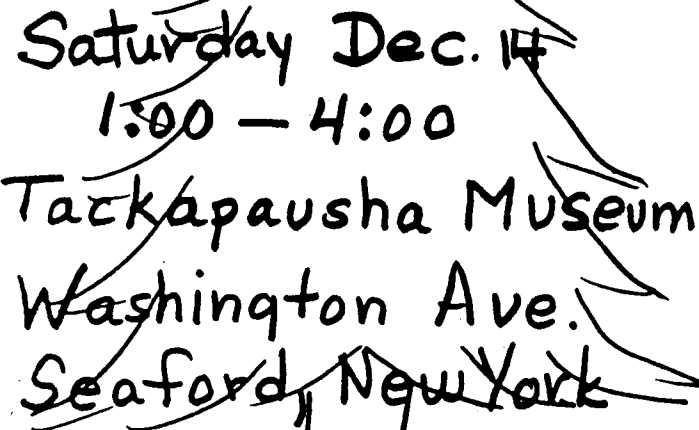 Saturday Dec. 14
1:00 – 4:00
Tackapausha Museum
Washington Ave.
Seaford, New York